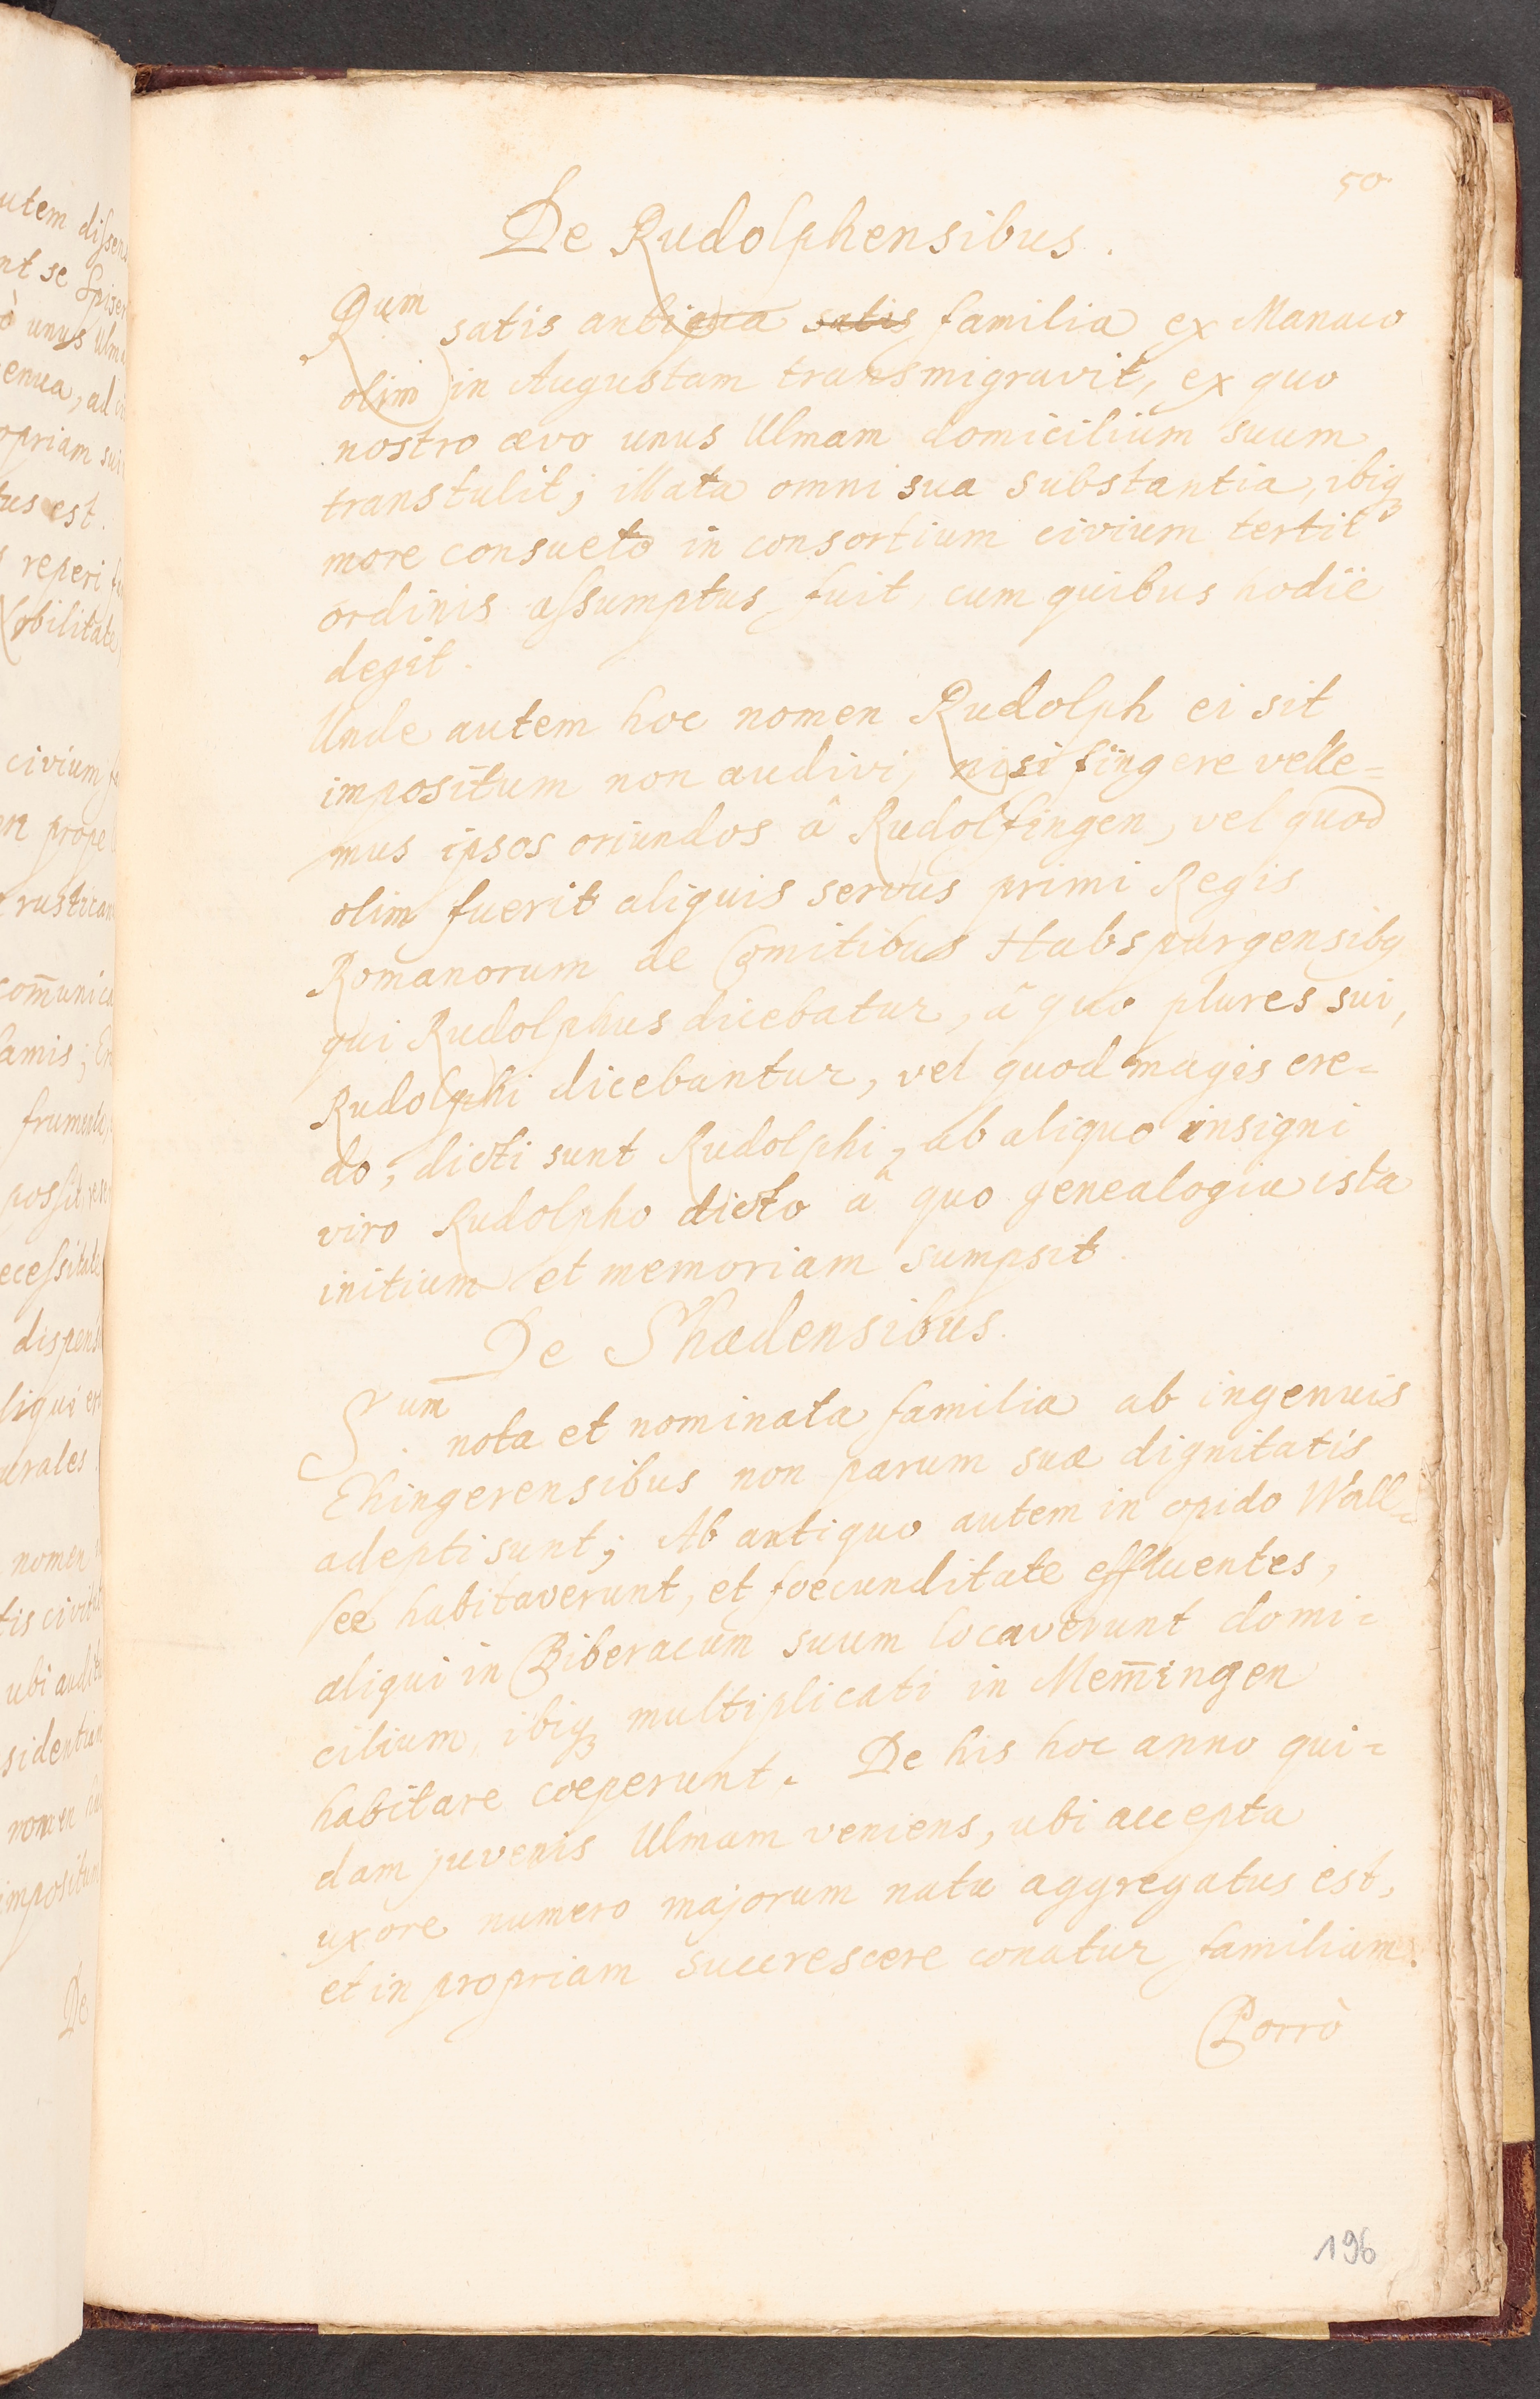 50
De Rudolphensibus.
Rum satis antiqua satis familia ex Manaco
olim in Augustam transmigravit, ex quo
nostro ævo unus Ulmam domicilium suum
transtulit; illata omni sua substantia, ibiq3
more consueto in consortium civium tertii
ordinis assumptus fuit cum quibus hodie
degit.
Unde autem hoc nomen Rudolph ei sit
impositum non audivi, nisi fingere velle=
mus ipsos oriundos â Rudolfingen, vel quod
olim fuerit aliquis servus primi Regis
Romanorum de Comitibus Habspurgensibq
qui Rudolphus dicebatur, â quo plures sui,
Rudolphi dicebantur, vel quod magis cre=
do, dicti sunt Rudolphi, ab aliquo insigni
viro Rudolpho dicto â quo genealogia ista
initium et memoriam sumpsit.
De Shædensibus.
Sum nota et nominata familia ab ingenuis
Ehingerensibus non parum suæ dignitatis
adepti sunt; Ab antiquo autem in opido Wall=
see habitaverunt, et foecunditate effluentes,
aliqui in Biberacum suum locaverunt domi=
cilium, ibiq3 multiplicati in Mem̄ingen
habitare coeperunt. De his hoc anno qui=
dam juvenis Ulmam veniens, ubi accepta
uxore numero majorum natu aggregatus est,
et in propriam succrescere conatur familiam.
Porrò
196
utem dissens
nt se Spiser
ò unus Ulm
enua, ad
opriam sui
tus est.
reperi
obilitate
civium
en prope
rustican
com̄unica
famis; 
frumenta
possit
ecessitate
dispens
liqui
urales
nomen
tis civit
ubi
sidentiam
nomen
impositum
De